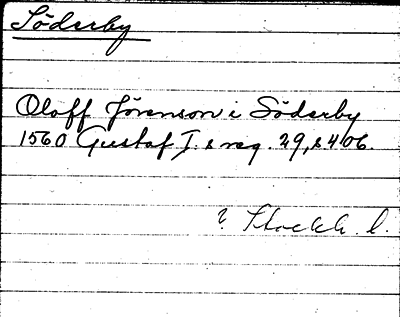 Söderby
Oloff Jörenson i Söderby
1560 Gustaf I:s reg. 29, s 406.
? Stockh. l.